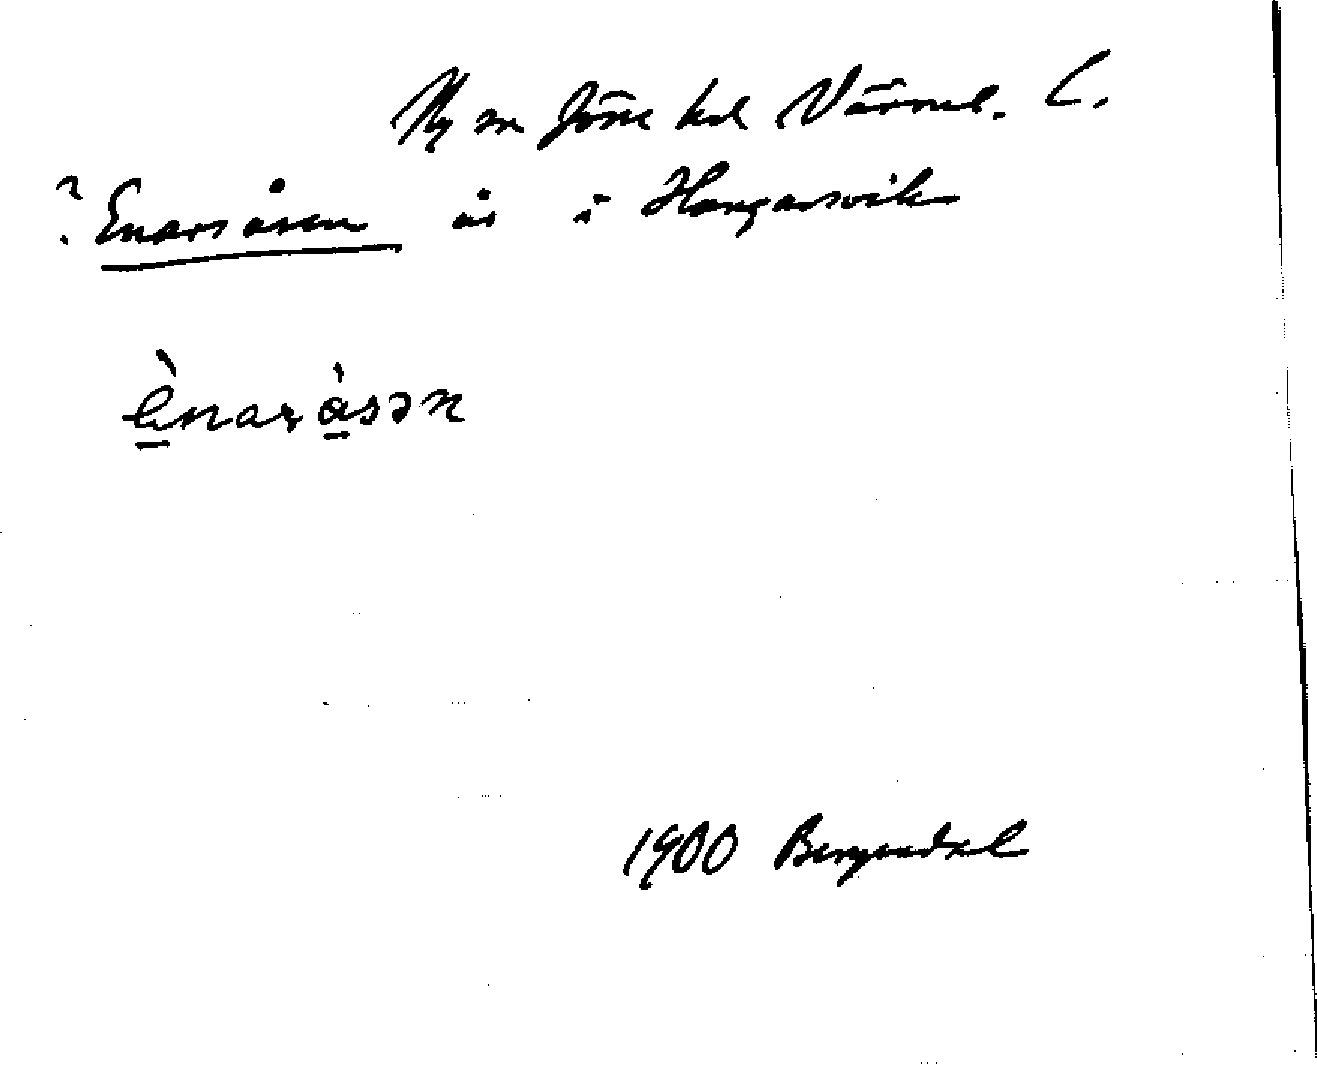 Ny sn Jösse hd Värml. L.
? Enarsåsen ås i Hangarsvik
ènaråsən
1900 Bergendal